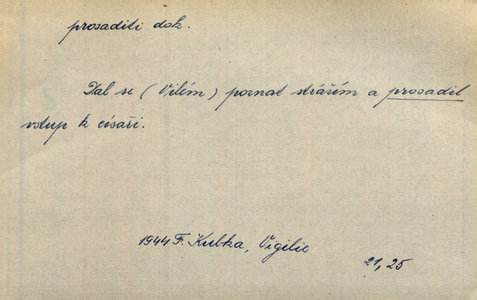 prosaditi dok.
Dal se (Vilém) poznat strážím a prosadil
vstup k císaři.
1944 F. Kubka, Vigilie
21, 25